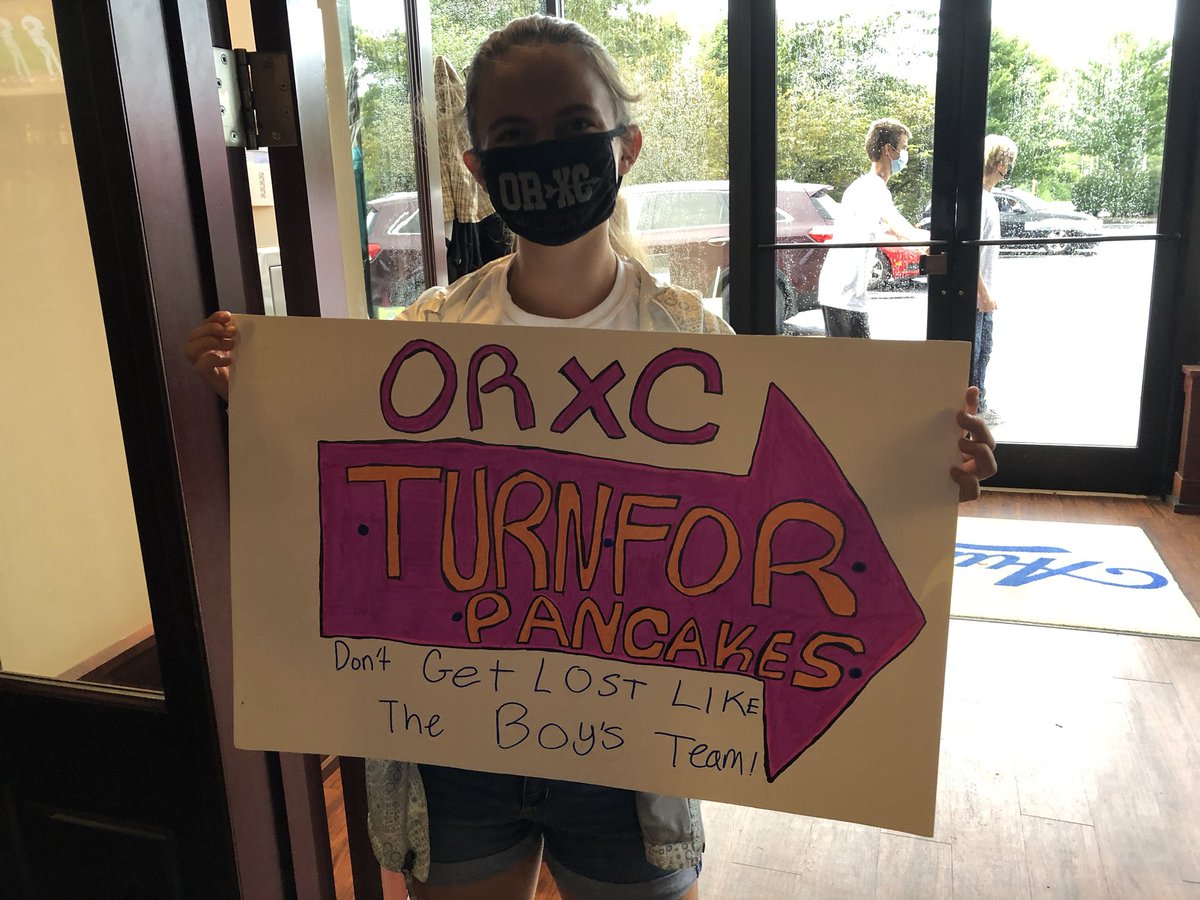 OR XC
OR XC
TURN FOR
PANCAKES
Don't Get LOST LIKE
The Boy's Team!